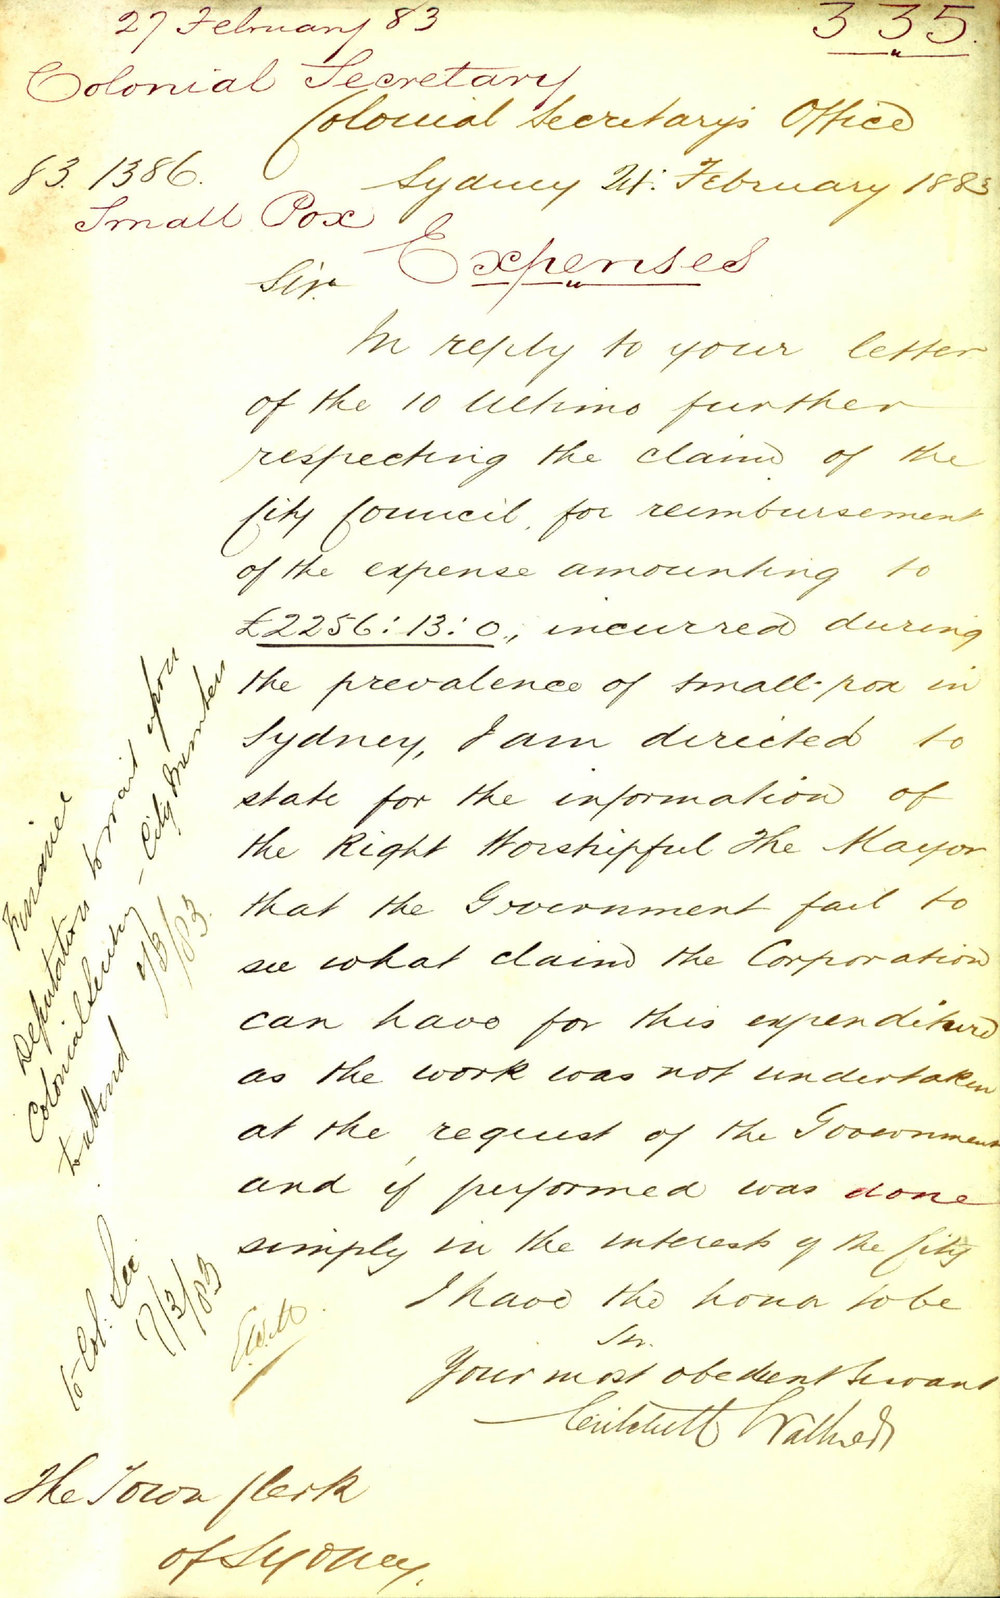 27 February 83
335.
Colonial Secretary
Colonial Secretary's Office
83. 1386.
Sydney 21: February 1883
Small Pox
Expenses
Sir
In reply to your letter
of the 10 Ultimo further
respecting the claim of the
City Council, for reimbursement
of the expense amounting to
£2256:13:0., incurred during
the prevalence of small-pox in
Sydney, I am directed to
state for the information of
the Right Worshipful the Mayor
that the Government fail to
see what claim the Corporation
can have for this expenditure
as the work was not undertaken
at the request of the Government
and if performed was done
simply in the interests of the City
I have the honor to be
Sir.
Your most obedient Servant
Critchett Walker
The Town Clerk
of Sydney.
Finance
Deputation to wait upon
Colonial Secretary - City Members
to attend
/3/83
to Col: Sec
/3/83